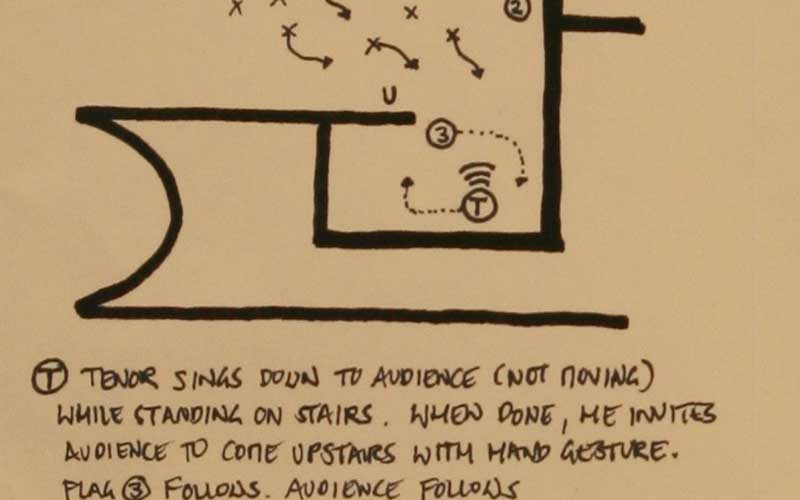 2
U
3
T
T TENOR SINGS DOWN TO AUDIENCE (NOT MOVING)
WHILE STANDING ON STAIRS. WHEN DONE, HE INVITES
AUDIENCE TO COME UPSTAIRS WITH HAND GESTURE.
FLAG 3 FOLLOWS. AUDIENCE FOLLOWS